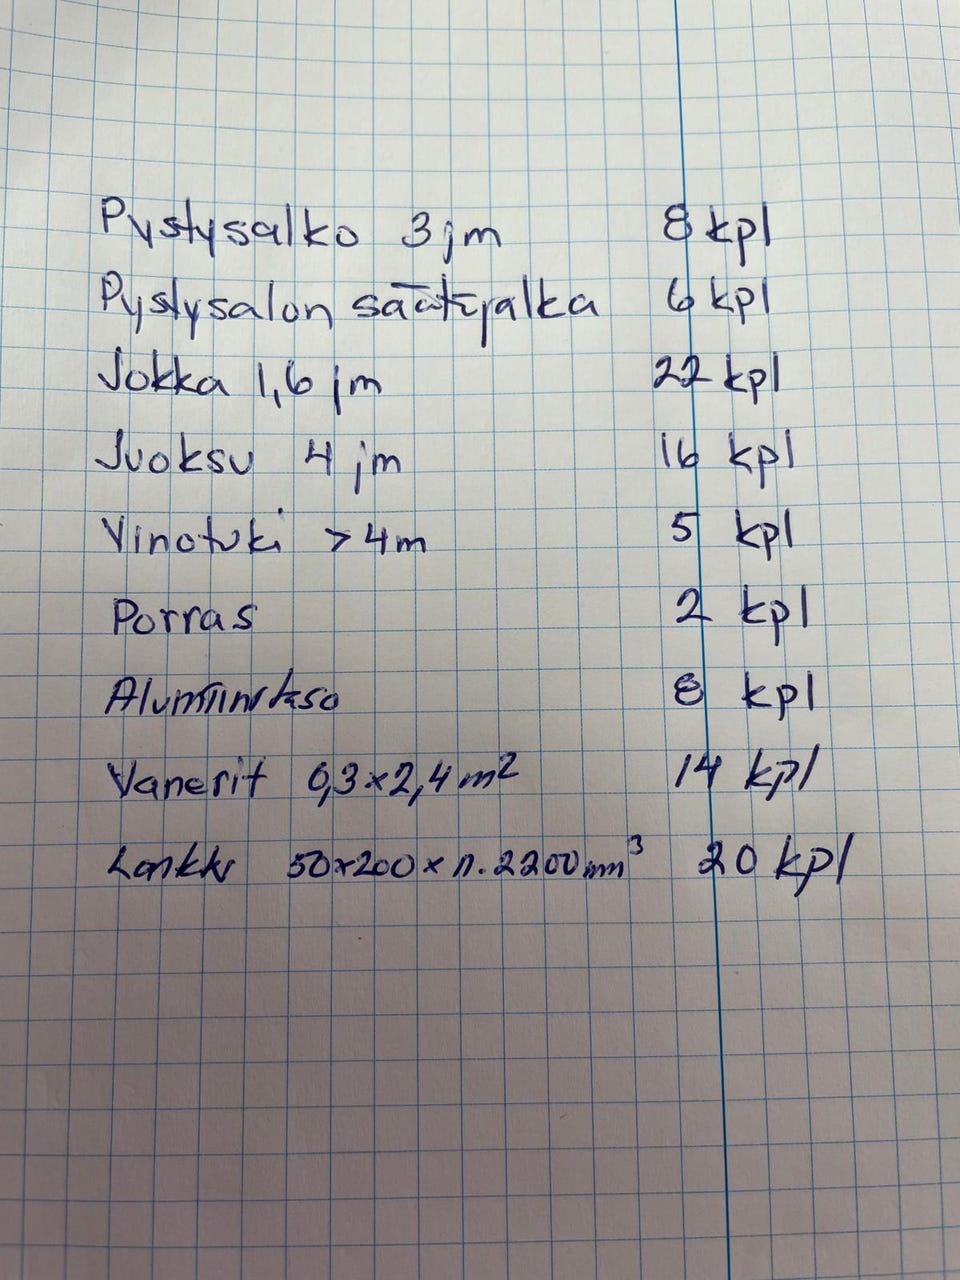 Pystysalko 3jm 8 kpl
Pystysalon säätöjalka 6 kpl
Jokka 1,6 jm 22 kpl
Juoksu 4 jm 16 kpl
Vinotuki >4m 5 kpl
Porras 2 kpl
8 kpl
Vanerit 0,3x2,4 m² 14 kpl
Lankku 50x200 x n. 2200mm³ 20 kpl